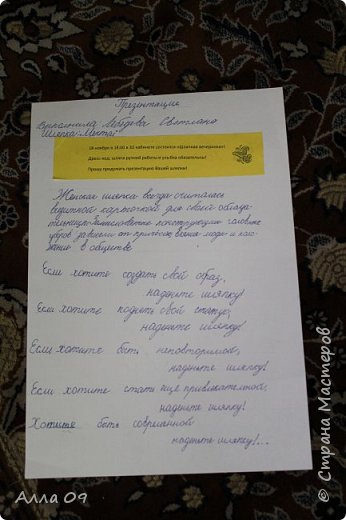 Презентация
выполнила Лебедева Светлана
Шляпка-Мечта!
18 ноября в 18.00 в 32 кабинете состоится «Шляпная вечеринка»!
Дресс-код: шляпа ручной работы и улыбка обязательны!
Прошу продумать презентацию Вашей шляпки!
Женская шляпка всегда считалась
визитной карточкой для своей облада-
тельницы. Замысловатые конструкции головных
уборов зависели от прически, веяния моды и поло-
жения в обществе.
Если хотите создать свой образ,
наденьте шляпку!
Если хотите поднять свой статус,
наденьте шляпку!
Если хотите быть неповторимой,
наденьте шляпку!
Если хотите стать ещё привлекательной,
наденьте шляпку!
Хотите быть современной
наденьте шляпку!...
Алла 09
© Страна Мастеров